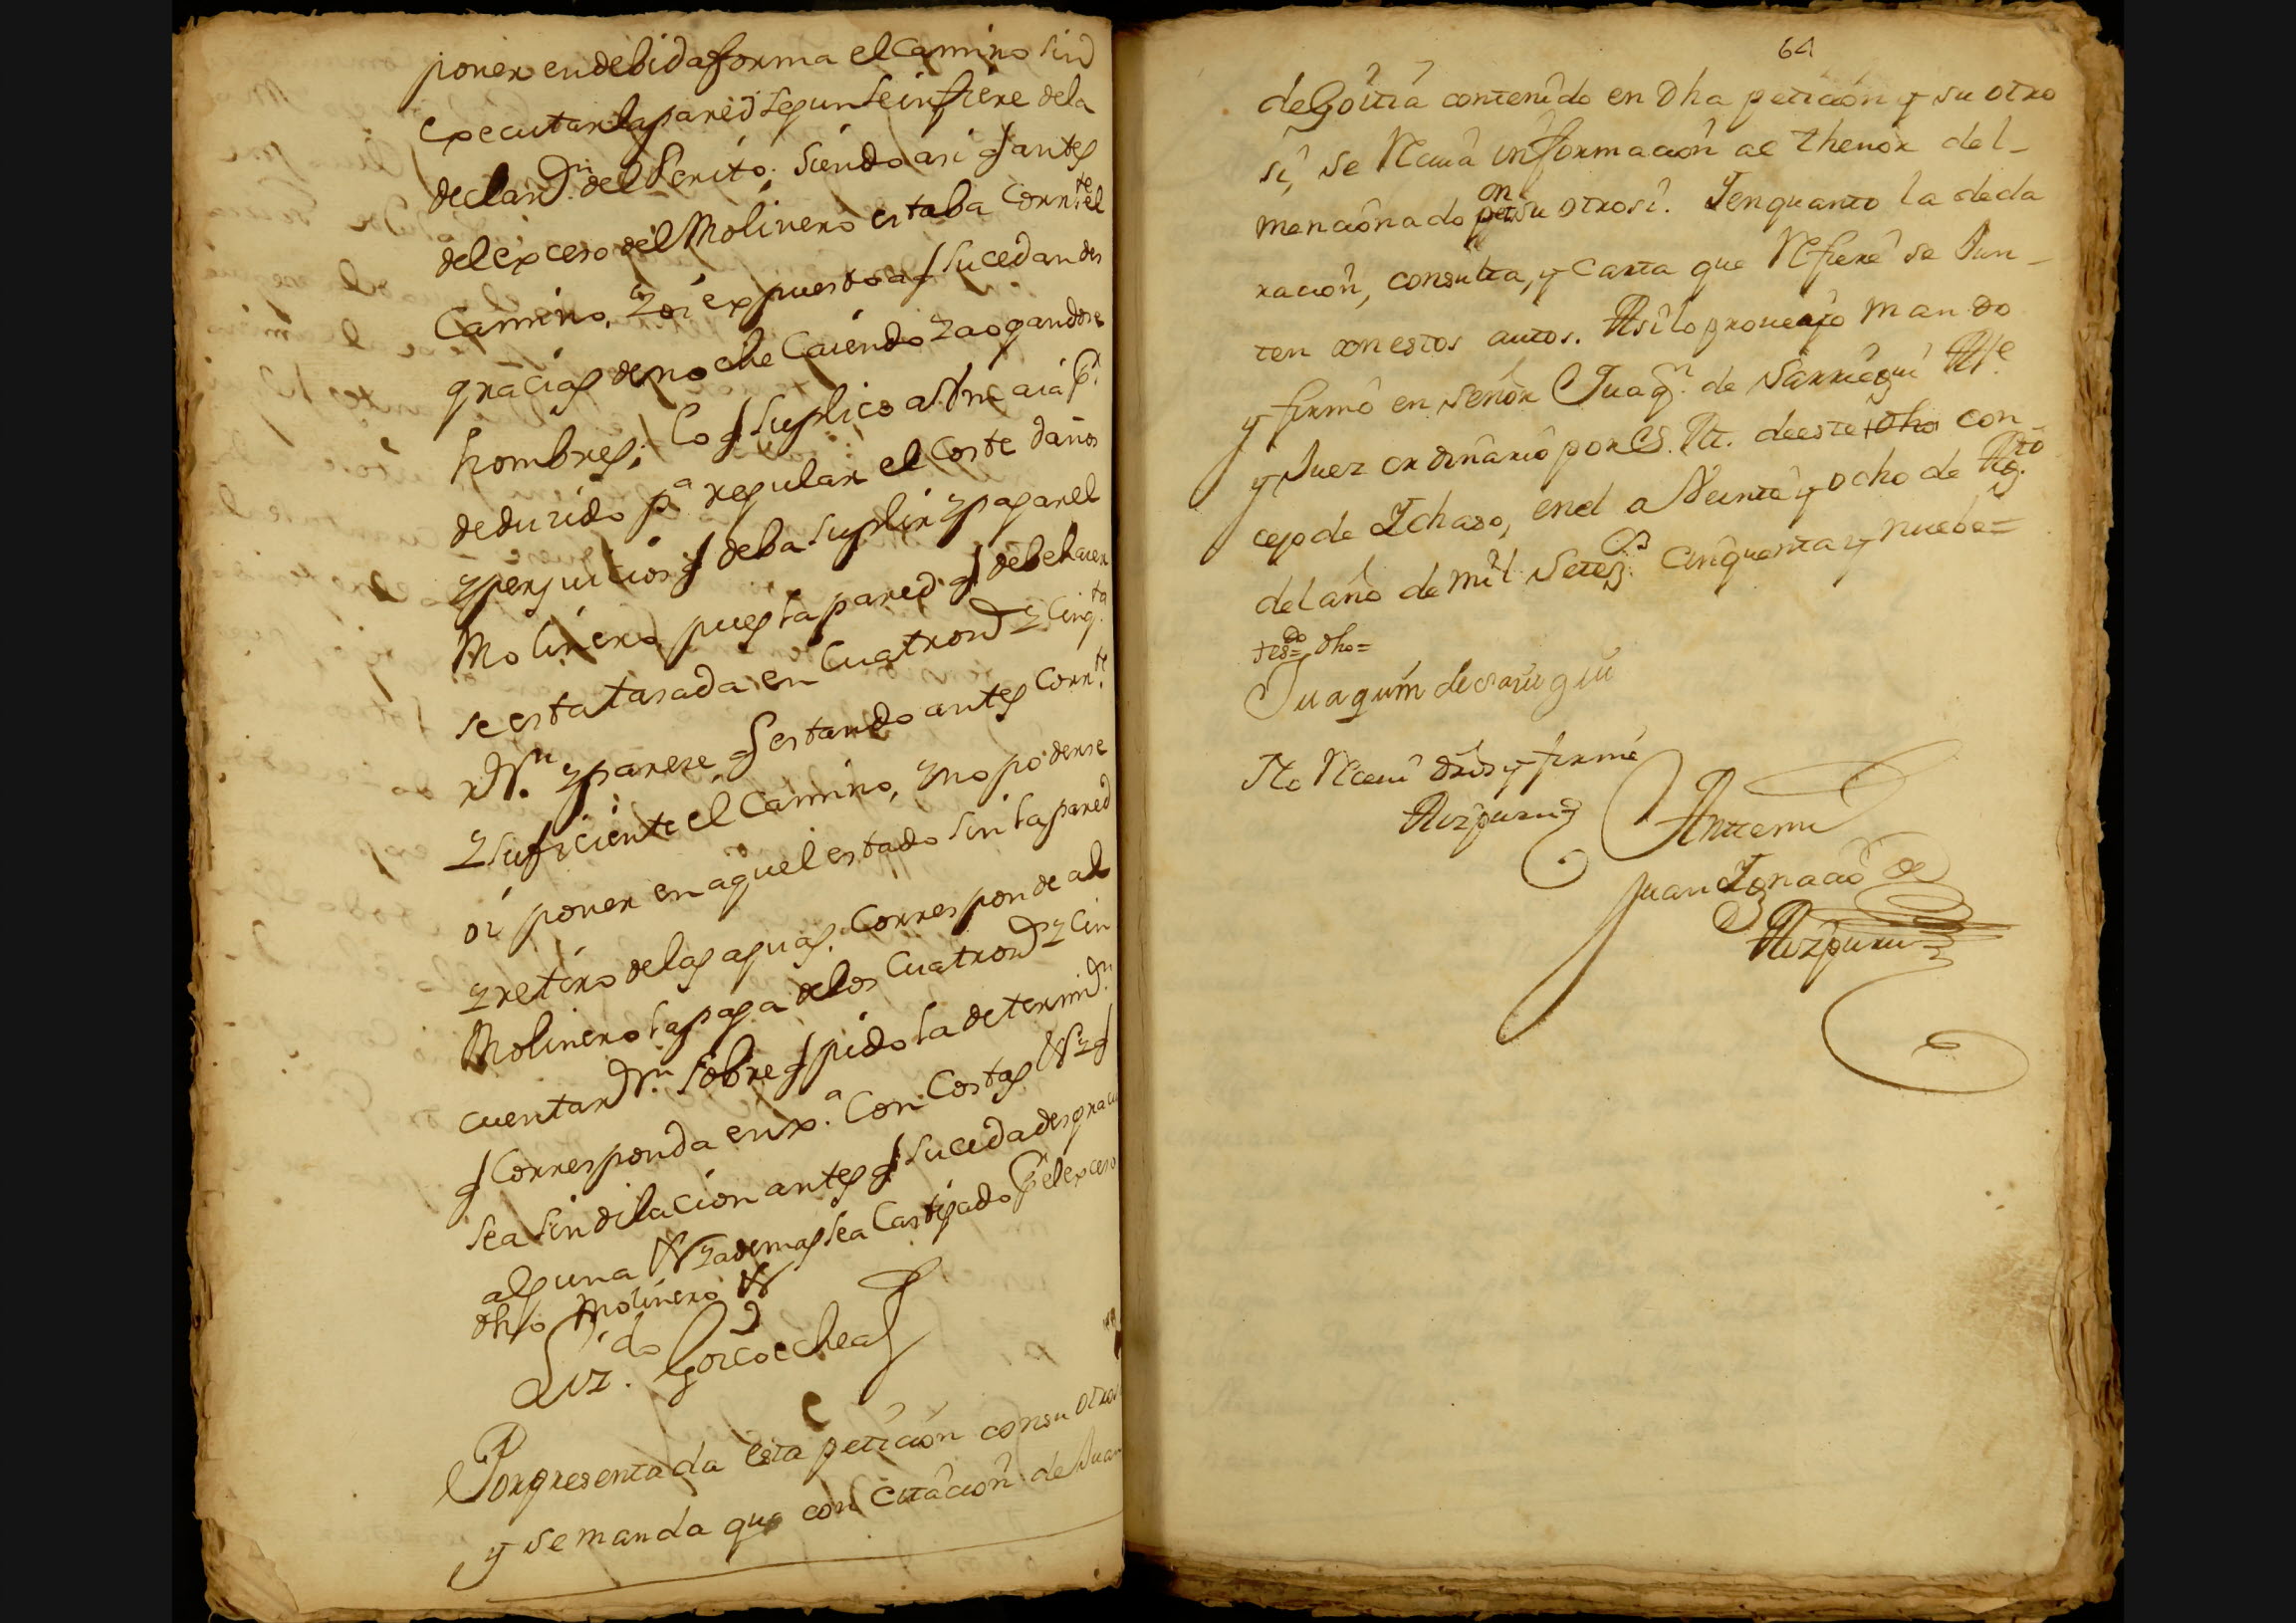 poner en debida forma el Camino sin
executar la pared segun se infiere de la
declar.on del Perito; siendo asi q antes
del exceso del Molinero estaba Corr.te el
Camino, y oi expuesto a q sucedan des
gracias de noche Caiendo y aogandose
hombres; Lo q suplico a Vm aia p.r
deduzido p.a regular el Coste daños
y perjuicios q deba suplir y pagar el
Molinero, pues la pared q debe hacer
se esta tasada en Cuatrod y Cinq.ta
rs. vn y parece q estando antes Corr.te
y suficiente el Camino, y no poderse
oi poner en aquel estado sin la pared
y retiro de las aguas. Corresponde al
Molinero la paga de los Cuatrod y Cin
cuenta rs. vn sobre q pido la determi.on
q Corresponda en x.a Con Costas y q
sea sin dilacion antes q suceda desgracia
alguna y ademas sea Castigado p.r el exceso
dho Molinero
Liz.do Goicoechea
Por presentada esta peticion con su otrosi
y se manda que con Citacion de Juan
64
de Goitia contenido en Dha peticion y su otro
si, se Reciua informacion al thenor del
mencionado on su otrosi. Y en quanto la decla
racion, consulta, y Carta que Refiere se Jun-
ten con estos autos. Asi lo proueyo mando
y firmó en señor Juaq.n de Sarriegui Alc.e
y Juez ordinario por S. M. de este dho con
cejo de Ichaso, en el a Veinte y ocho de Ag.to
del año de mil Setez.s Cinquenta y nuebe=
test.do= Dho=
Juaquim de Sariegui
Yo Reciui dros y firmé
Aizpuru
Antemi
Juan Ignacio de
Aizpuru